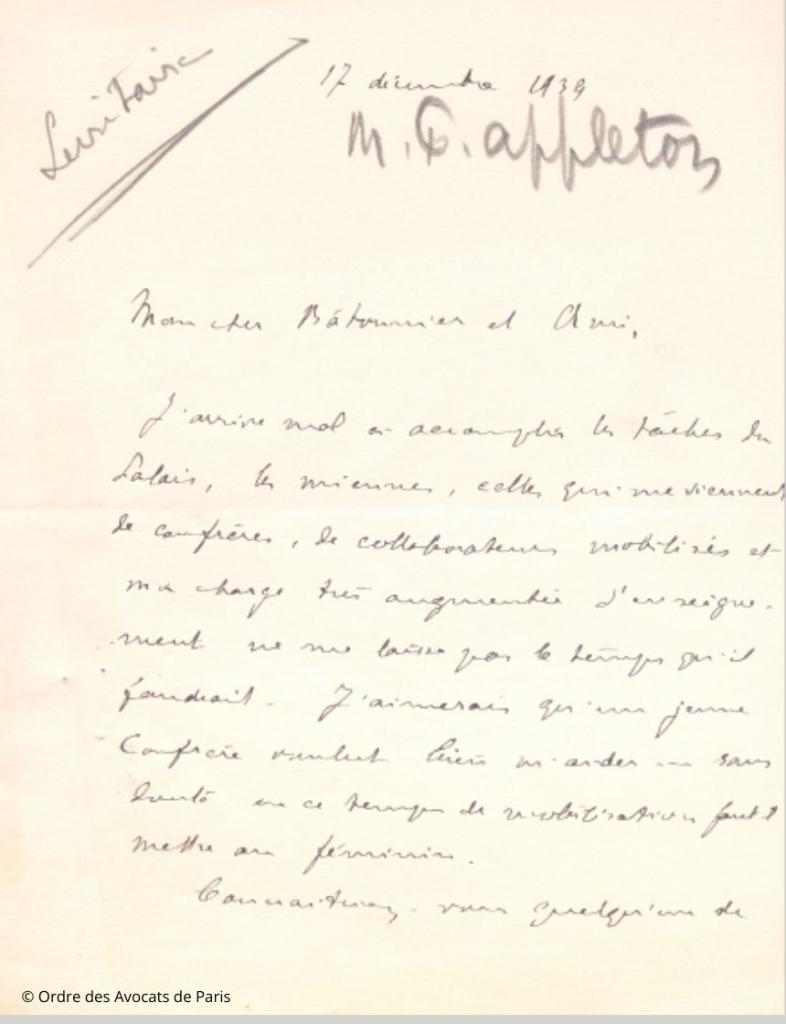 17 décembre 1939
M. C. appleton
Mon cher Bâtonnier et Ami,
J'arrive mal à accomplir les tâches du
Palais, les miennes, celles qui me viennent
de confrères, de collaborateurs mobilisés et
ma charge très augmentée d'enseigne-
ment ne me laisse pas le temps qu'il
faudrait. J'aimerais qu'un jeune
Confrère voulut bien m'aider — sans
doute en ce temps de mobilisation faut-il
mettre au féminin.
Connaitriez-vous quelqu'un de
© Ordre des Avocats de Paris